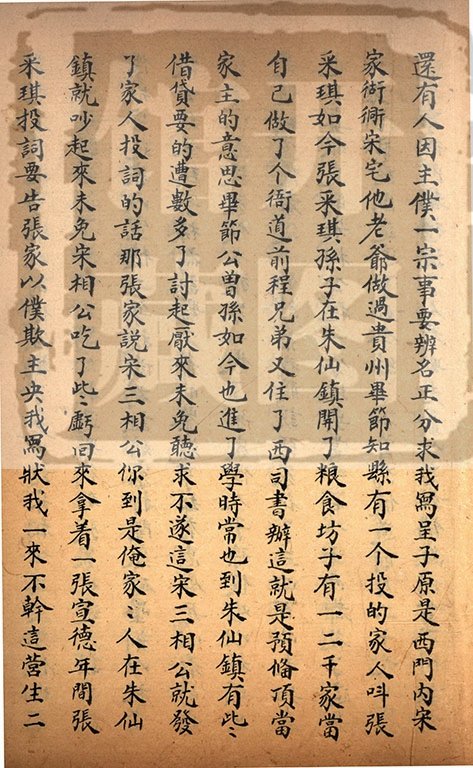 還有人因主僕一宗事要辨名正分求我寫呈子原是西門內宋
家衚衕宋宅他老爺做過貴州畢節知縣有一个投的家人呌張
采琪如今張采琪孫子在朱仙鎮開了粮食坊子有一二千家當
自己做了个衙道前程兄弟又住了西司書辦這就是預備頂當
家主的意思畢節公曾孫如今也進了學時常也到朱仙鎮有些〻
借貸要的遭數多了討起厭來未免聽求不遂這宋三相公就發
了家人投詞的話那張家説宋三相公你到是俺家〻人在朱仙
鎮就吵起來未免宋相公吃了些〻虧回來拿着一張宣德年間張
采琪投詞要告張家以僕欺主央我寫狀我一來不幹這營生二